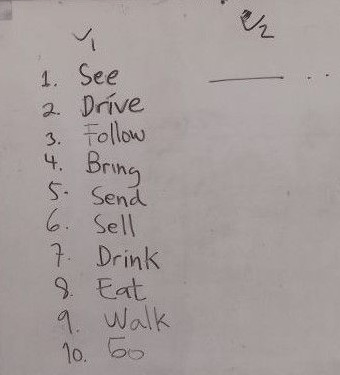 V1 V2
1. See ______ ..
2. Drive
3. Follow
4. Bring
5. Send
6. Sell
7. Drink
8. Eat
9. Walk
10. Go